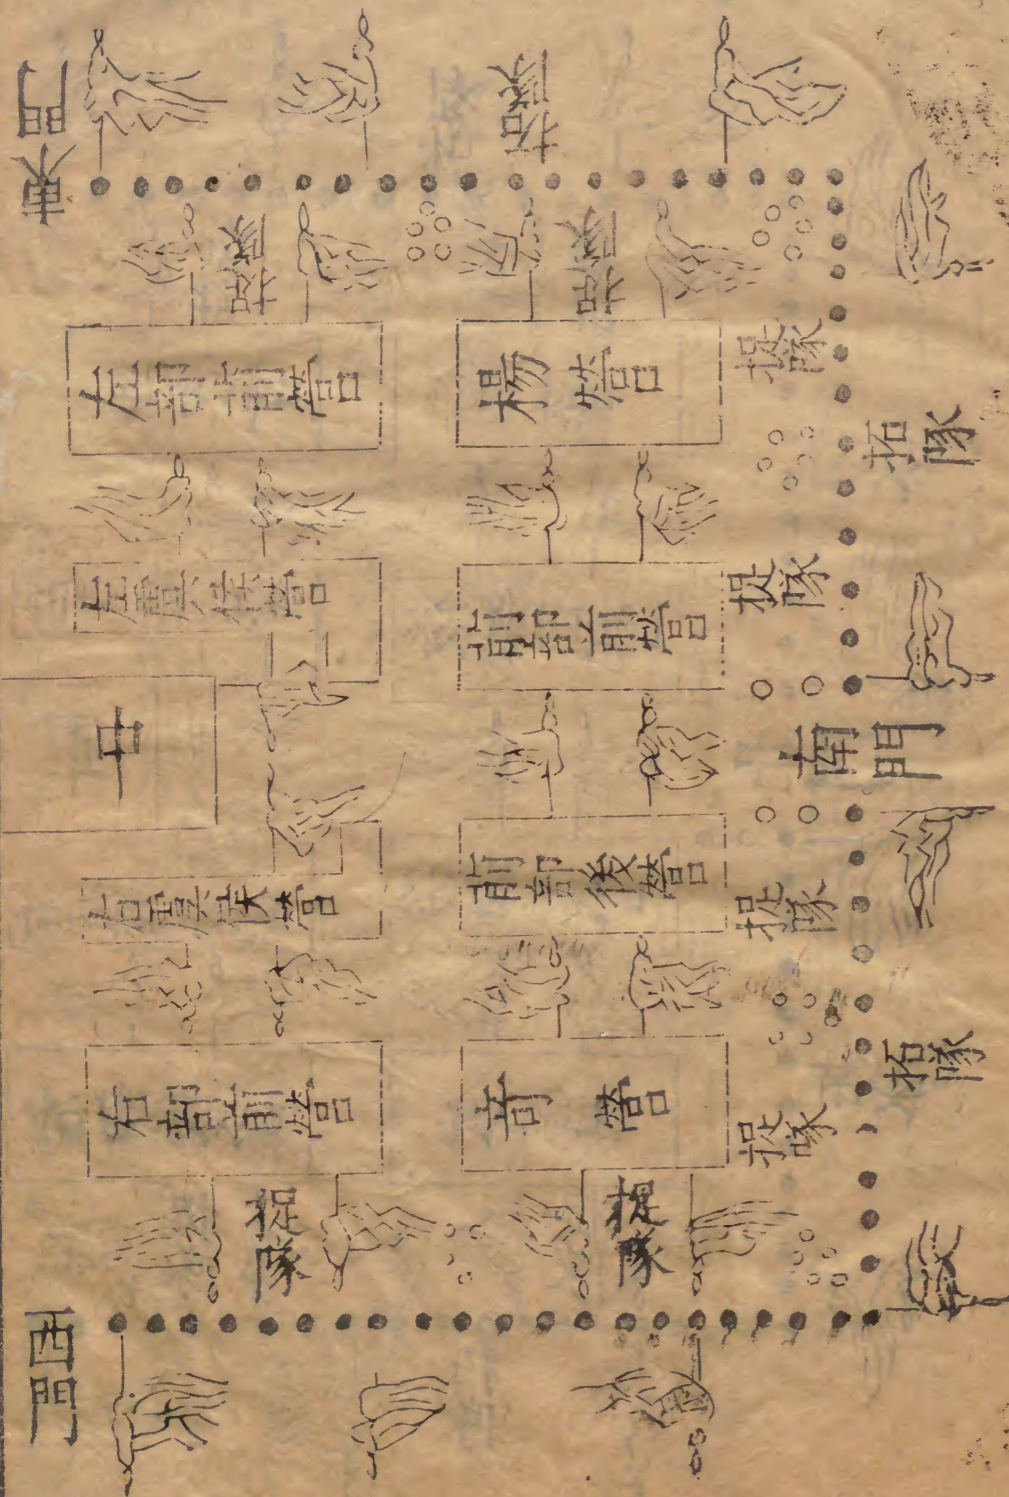 東門
拓隊
捉隊
捉隊
左部前營
楊營
捉隊
拓隊
左虞侯營
前部前營
捉隊
中
南門
右虞侯營
前部後營
捉隊
右部前營
奇營
捉隊
拓隊
捉隊
捉隊
西門